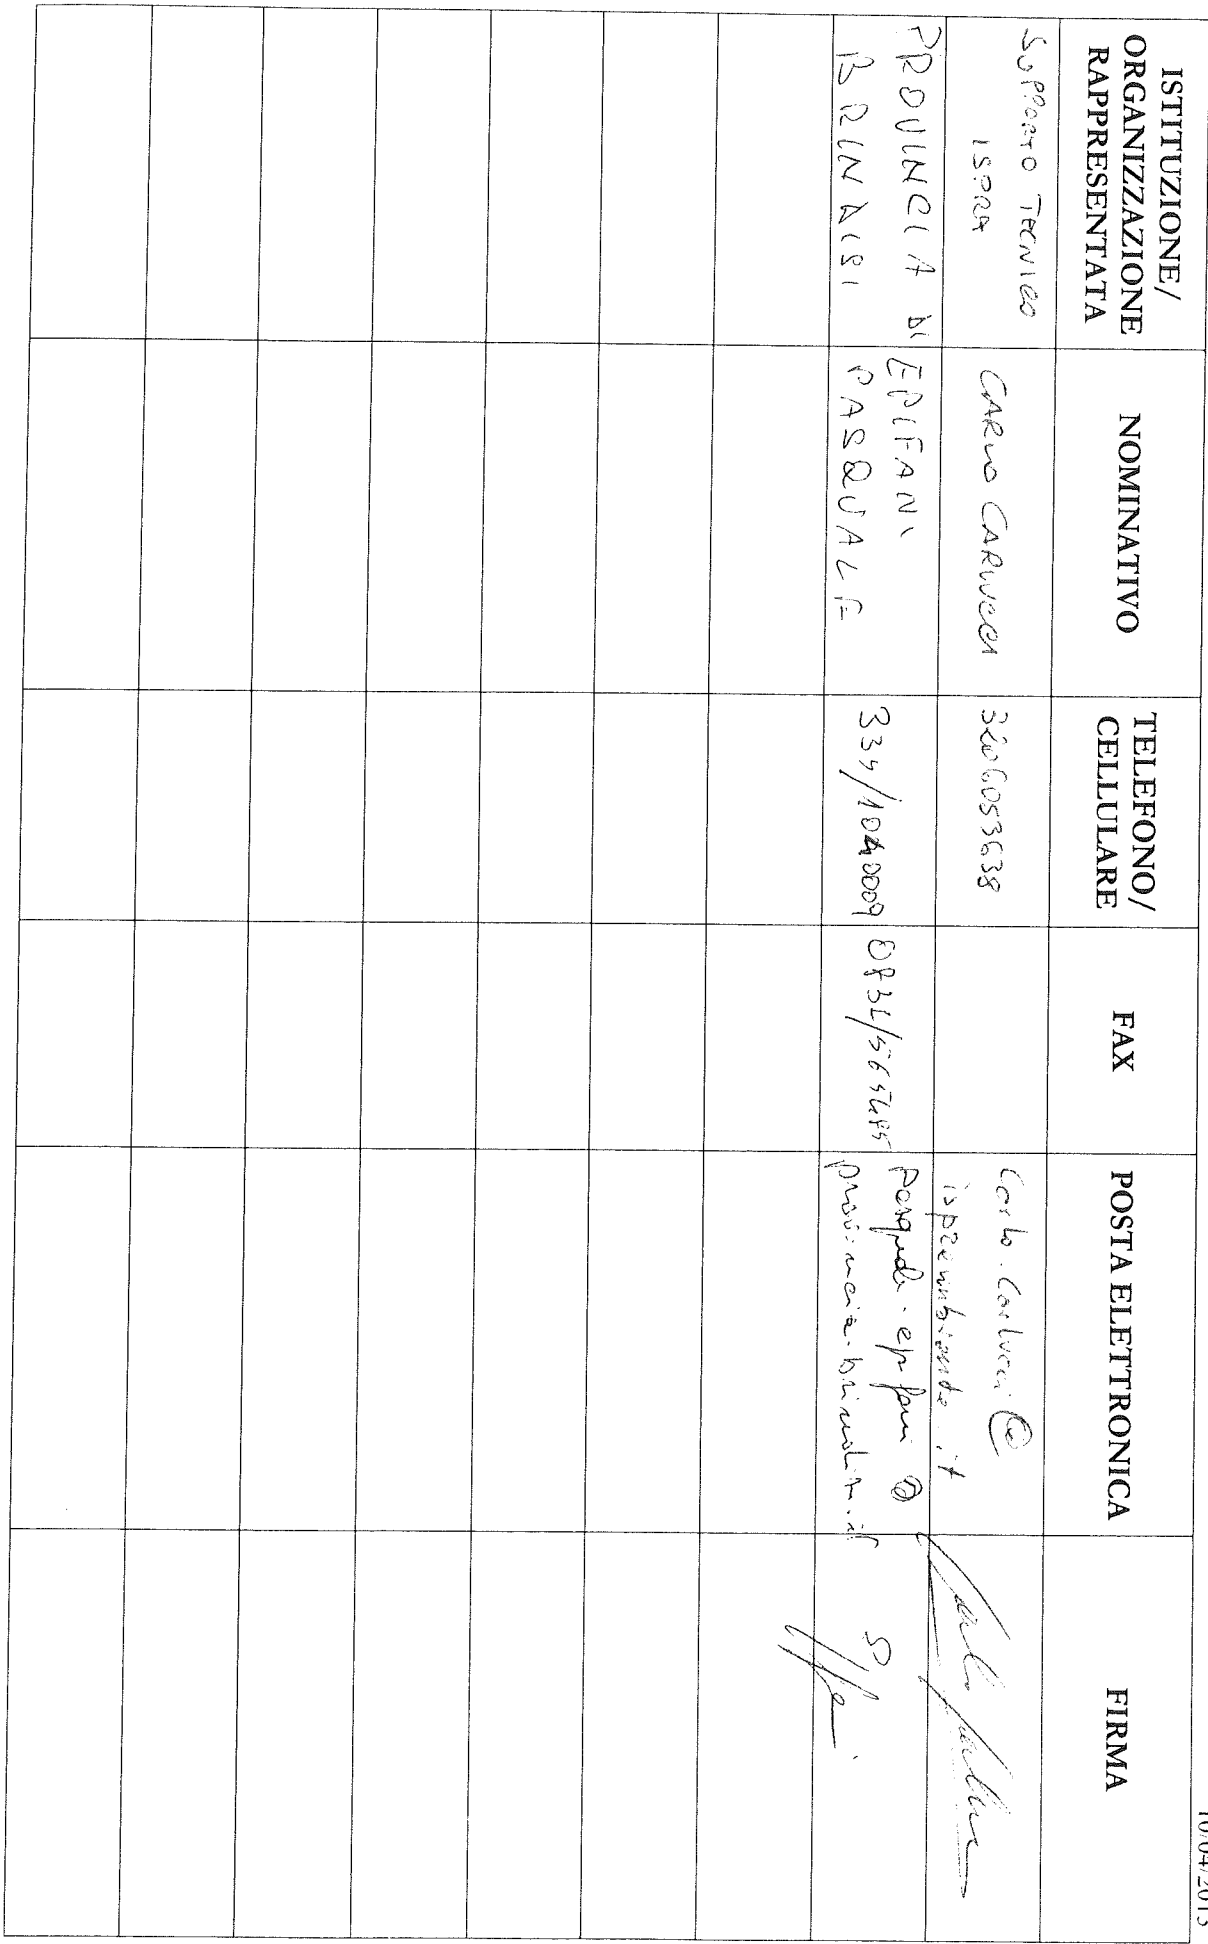 10/04/2013
ISTITUZIONE/
ORGANIZZAZIONE
RAPPRESENTATA
NOMINATIVO
TELEFONO/
CELLULARE
FAX
POSTA ELETTRONICA
FIRMA
SUPPORTO TECNICO
ISPRA
CARLO CARLUCCI
3206053638
Carlo.Carlucci@
isprambiente.it
PROVINCIA DI
BRINDISI
EPIFANI
PASQUALE
pasquale.epifani@
provincia.brindisi.it